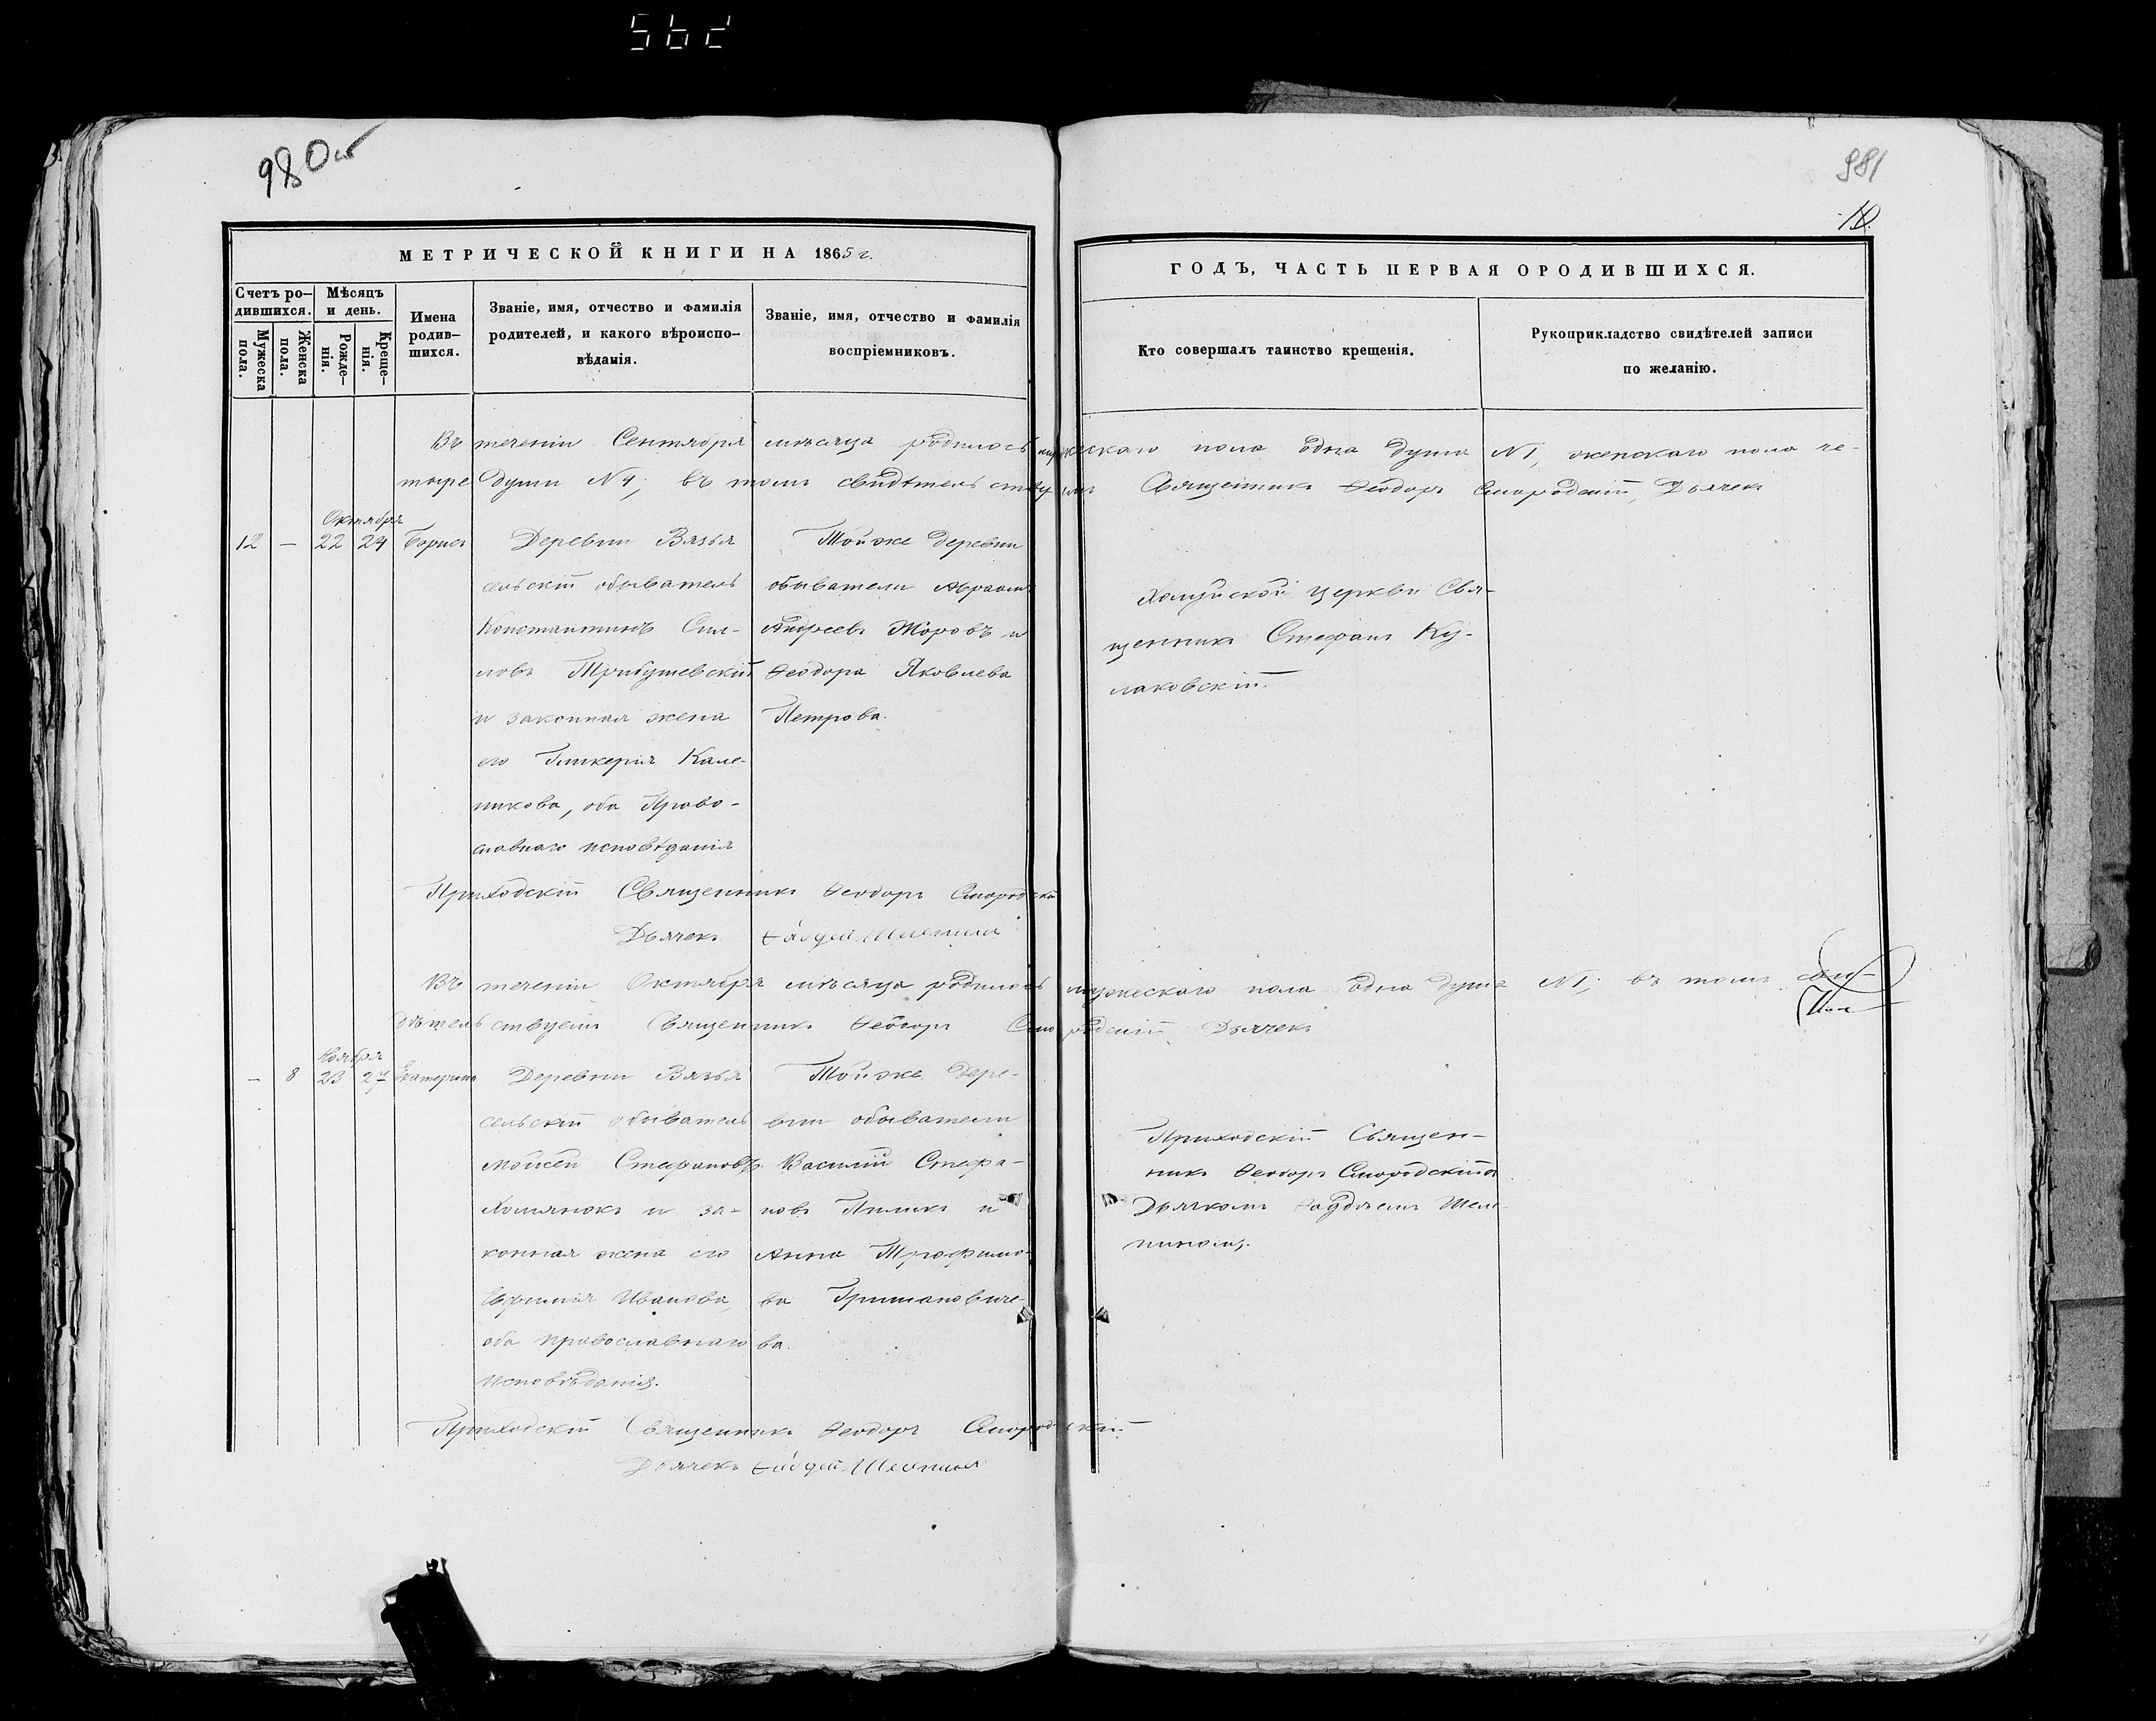 5bd
980об
981
10.
МЕТРИЧЕСКОЙ КНИГИ НА 1865 г.
ГОДЪ, ЧАСТЬ ПЕРВАЯ ОРОДИВШИХСЯ.
Счетъ ро-
дившихся.
Мужеска
пола.
Женска
пола.
Мѣсяцъ
и день.
Рожде-
нія.
Креще-
нія.
Имена
родив-
шихся.
Званіе, имя, отчество и фамилія
родителей, и какого вѣроиспо-
вѣданія.
Званіе, имя, отчество и фамилія
воспріемниковъ.
Кто совершалъ таинство крещенія.
Рукоприкладство свидѣтелей записи
по желанію.
Въ теченіи Сентября мѣсяца родилось мужескаго пола одна душа N1, женскаго пола че-
тыре души N4; въ томъ свидѣтельствуемъ Священникъ Ѳеодоръ Смородскій, Дьячекъ
Октября
12 — 22 24 Борисъ
Деревни Вязья
сельскій обыватель
Константинъ
Трибушевскій
и законная жена
его Гликерія Кале-
никова, оба Право-
славнаго исповѣданія
Тойже деревни
обыватели Авраамъ
Андреевъ Жоровъ и
Ѳеодора Яковлева
Петрова.
Холуйской церкви Свя-
щенникъ Стефанъ Ку-
лаковскій.
Приходскій Священникъ Ѳеодоръ Смородскій
Дьячекъ Ѳаддей
Въ теченіи Октября мѣсяца родилось мужескаго пола одна душа N1; въ томъ сви-
дѣтельствуемъ Священникъ Ѳеодоръ Смородскій, Дьячекъ
Ноября
— 8 23 27 Екатерина
Деревни Вязья
сельскій обыватель
Моисей Стефановъ
Хомянокъ и за-
конная жена его
Евфимія Иванова,
оба православнаго
исповѣданія.
Тойже дере-
вни обыватели
Василій Стефа-
новъ Пиликъ и
Анна Трофимо-
ва Гришановиче-
ва.
Приходскій Священ-
никъ Ѳеодоръ Смородскій съ
Дьячкомъ Ѳаддеемъ Шеле-
пиномъ.
Приходскій Священникъ Ѳеодоръ Смородскій
Дьячекъ Ѳаддей